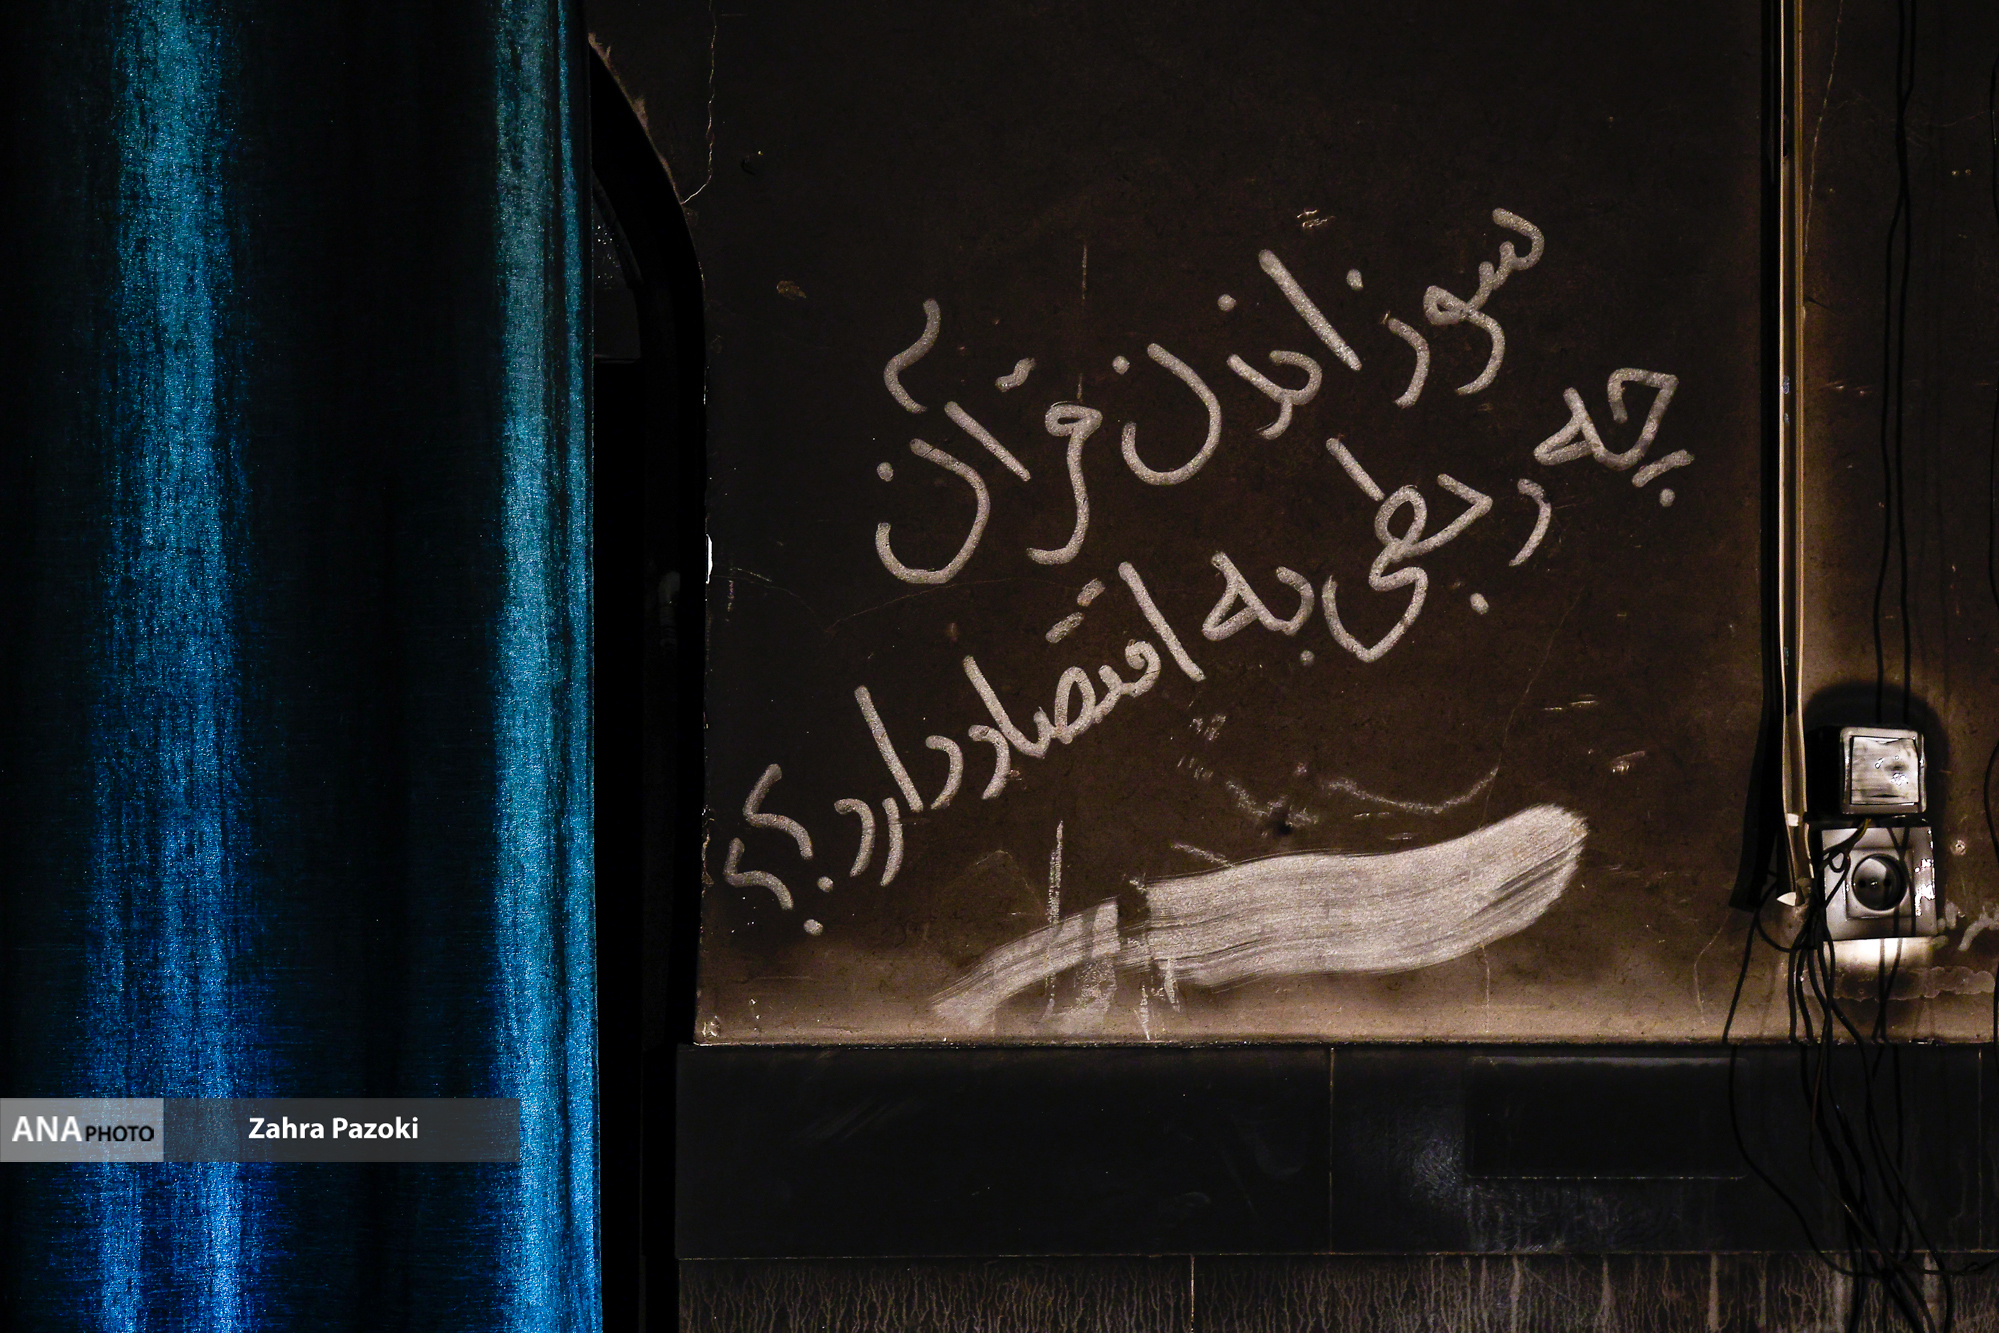 سوزاندن قرآن
چه ربطی به اقتصاد دارد؟؟
ANA PHOTO
Zahra Pazoki